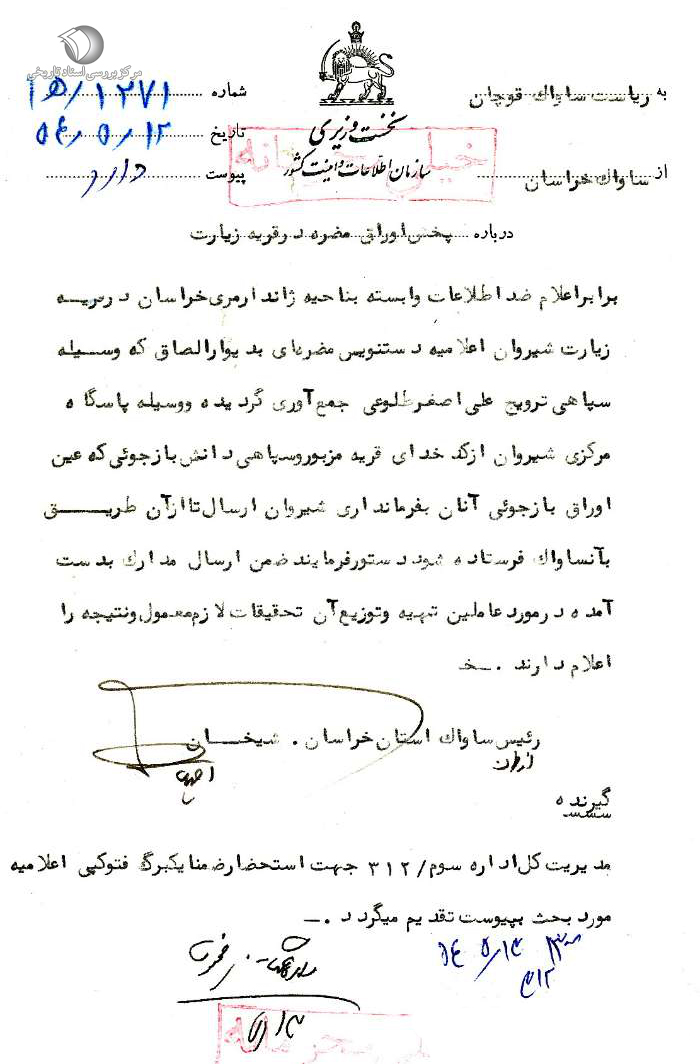 مرکز بررسی اسناد تاریخی
به ریاست ساواک قوچان
شماره ۱۲۷۱/ه۱
نخست وزیری
تاریخ ۵۴/۵/۱۲
خیلی محرمانه
سازمان اطلاعات و امنیت کشور
از ساواک خراسان
پیوست دارد
درباره پخش اوراق مضره در قریه زیارت
برابر اعلام ضد اطلاعات وابسته بناحیه ژاندارمری خراسان در قریه
زیارت شیروان اعلامیه دستنویس مضره‌ای بدیوار الصاق که وسیله
سپاهی ترویج علی اصغر طلوعی جمع‌آوری گردیده و وسیله پاسگاه
مرکزی شیروان از کدخدای قریه مزبور و سپاهی دانش بازجوئی که عین
اوراق بازجوئی آنان بفرمانداری شیروان ارسال تا از آن طریق
بآنساواک فرستاده شود دستور فرمایند ضمن ارسال مدارک بدست
آمده در مورد عاملین تهیه و توزیع آن تحقیقات لازم معمول و نتیجه را
اعلام دارند . ـخ
رئیس ساواک استان خراسان . شیخان
گیرنده
مدیریت کل اداره سوم/۳۱۲ جهت استحضار ضمنا یکبرگ فتوکپی اعلامیه
مورد بحث بپیوست تقدیم میگردد .ـ
۵۴/۵/۱۴
۳۱۲
۵/۱۴
خیلی محرمانه